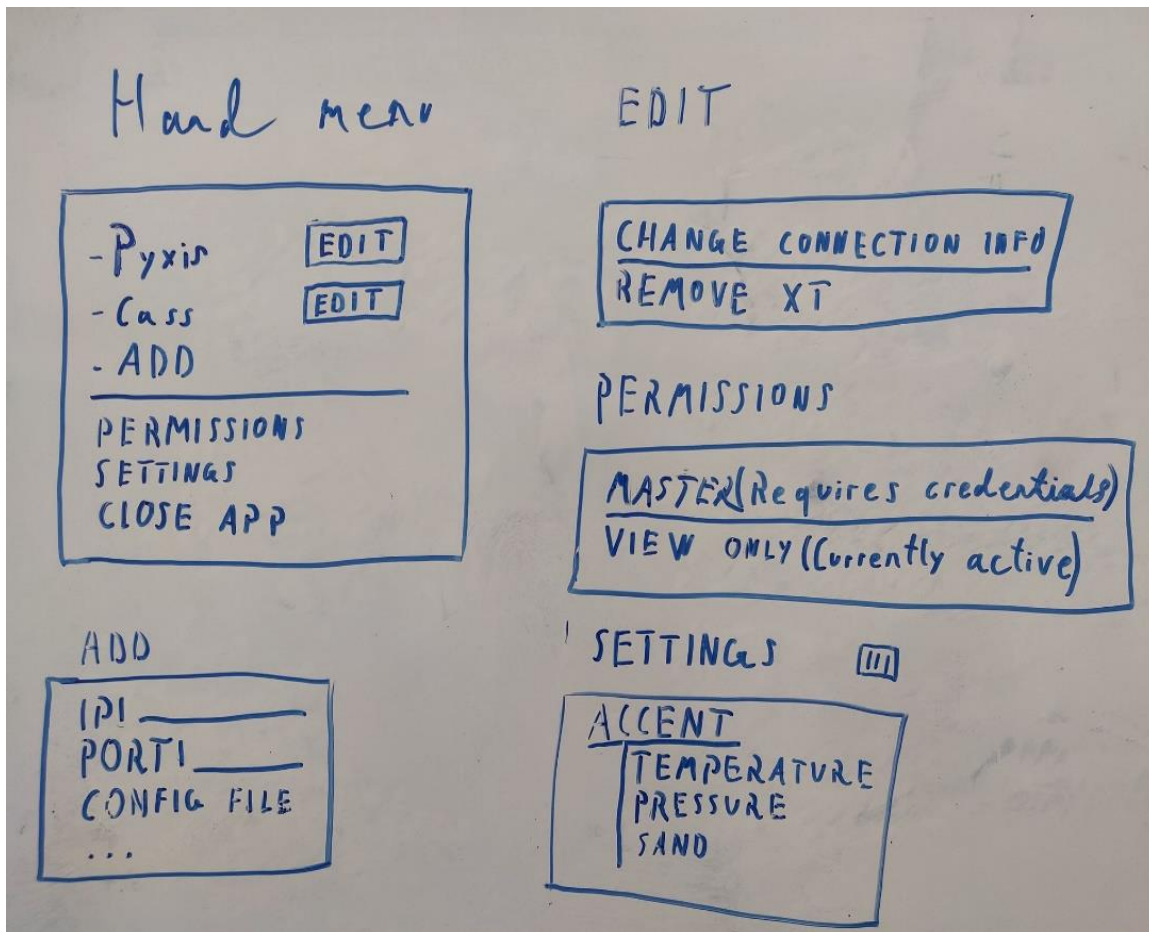 Hand menu
- Pyxis EDIT
- Cass EDIT
- ADD
PERMISSIONS
SETTINGS
CLOSE APP
ADD
IP:
PORT:
CONFIG FILE
...
EDIT
CHANGE CONNECTION INFO
REMOVE XT
PERMISSIONS
MASTER (Requires credentials)
VIEW ONLY (Currently active)
SETTINGS
ACCENT
TEMPERATURE
PRESSURE
SAND